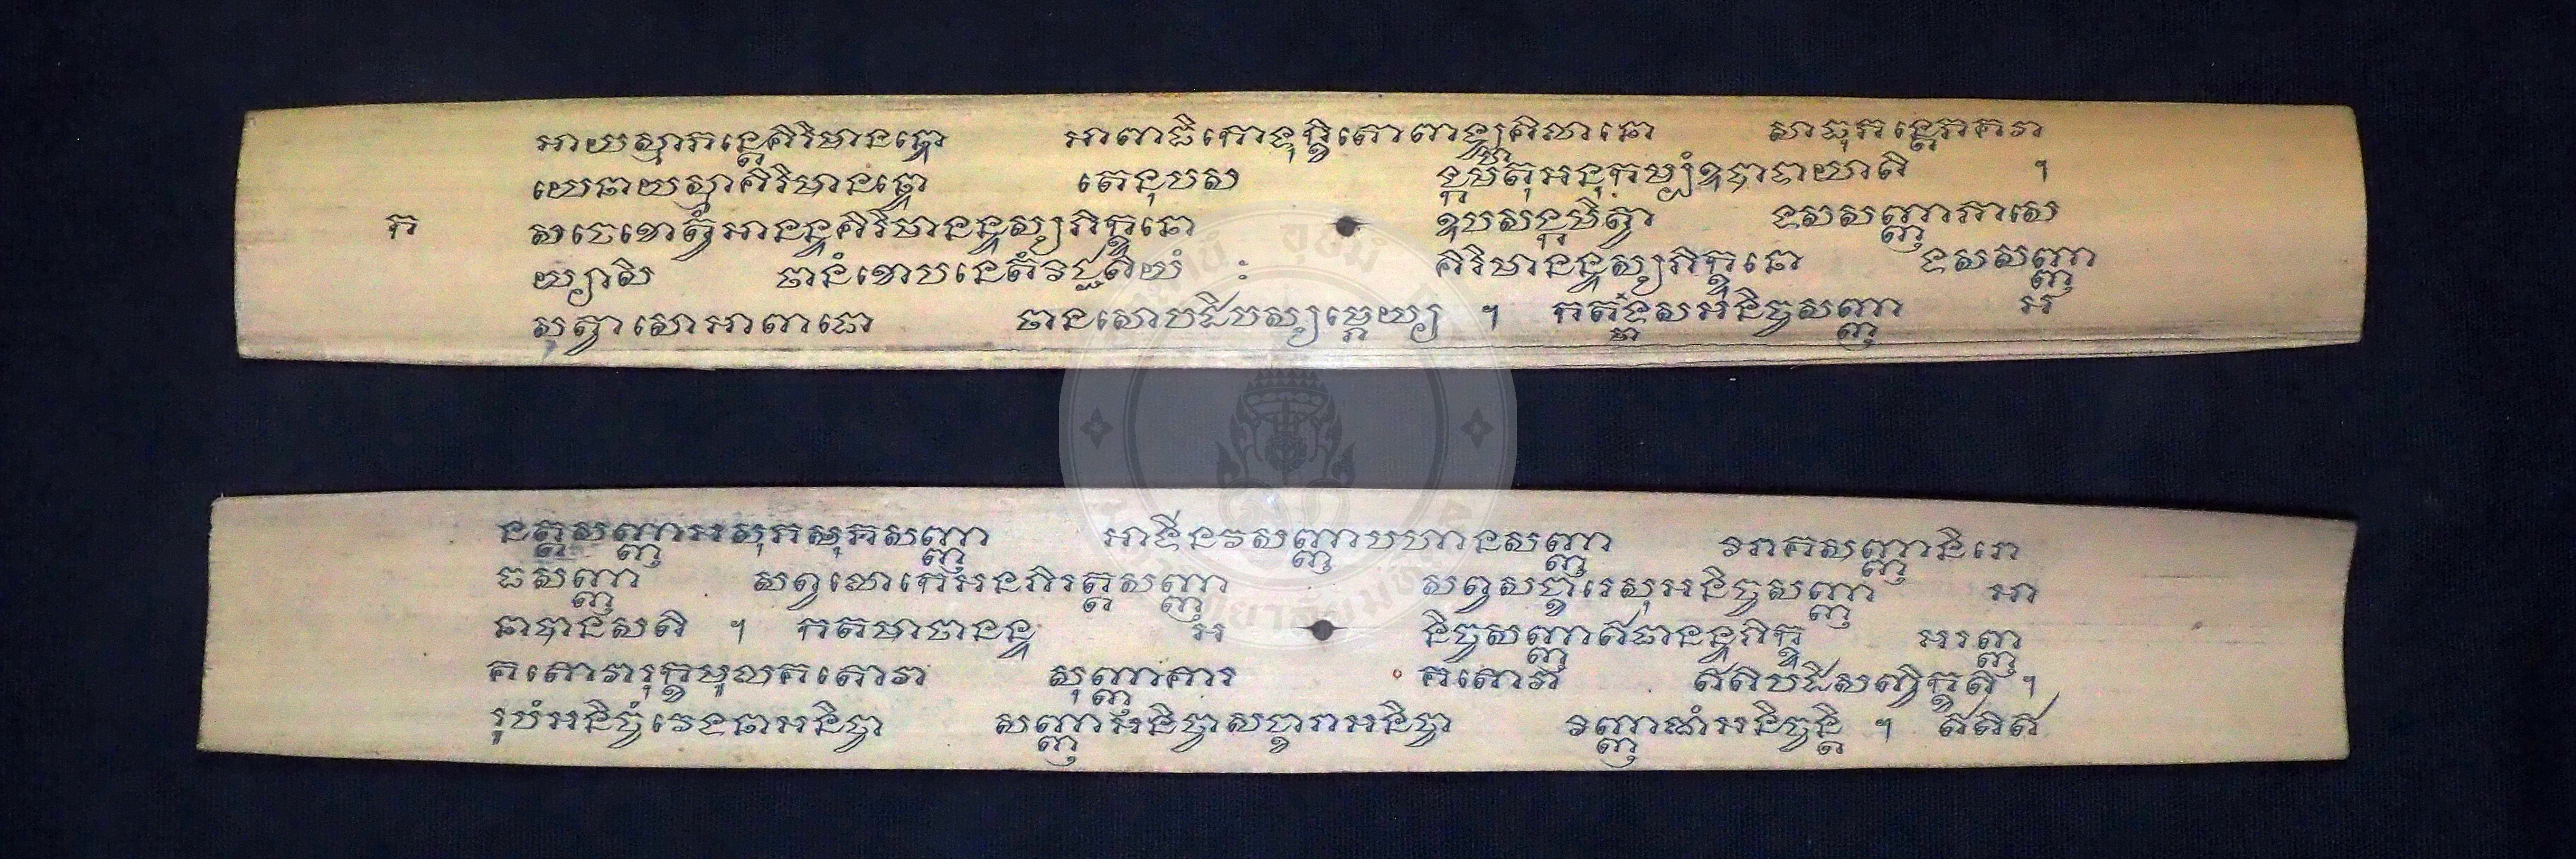 អាយស្មាភន្តេគិរិមានន្ទោ អាពាធិកោទុក្ខិតោពាឡ្ហគិលានោ សាធុភន្តេភគវា
យេនាយស្មាគិរិមានន្ទោ តេនុបស ង្កមតុអនុកម្បំឧបាទាយាតិ ។
ក សចេខោត្វំអានន្ទគិរិមានន្ទស្សភិក្ខុនោ ឧបសង្កមិត្វា ទសសញ្ញាភាសេ
យ្យាសិ ឋានំខោបនេតំវិជ្ជតិយំ : គិរិមានន្ទស្សភិក្ខុនោ ទសសញ្ញា
សុត្វាសោអាពាធោ ឋានសោបដិបស្សម្ភេយ្យ ។ កតមាទសអនិច្ចសញ្ញា អ
នត្តសញ្ញាអសុភសញ្ញា អាទីនវសញ្ញាបហានសញ្ញា វិរាគសញ្ញានិរោ
ធសញ្ញា សព្វលោកេអនភិរត្តសញ្ញា សព្វសង្ខារេសុអនិច្ចសញ្ញា អា
នាបានសតិ ។ កតមាចានន្ទ អ និច្ចសញ្ញាឥធានន្ទភិក្ខុ អរញ្ញ
គតោវារុក្ខមូលគតោវា សុញ្ញាគារ គតោវា ឥតិបដិសញ្ចិក្ខតិ ។
រូបំអនិច្ចំវេទនាអនិច្ចា សញ្ញាអនិច្ចាសង្ខារាអនិច្ចា វិញ្ញាណំអនិច្ចន្តិ ។ ឥតិឥ